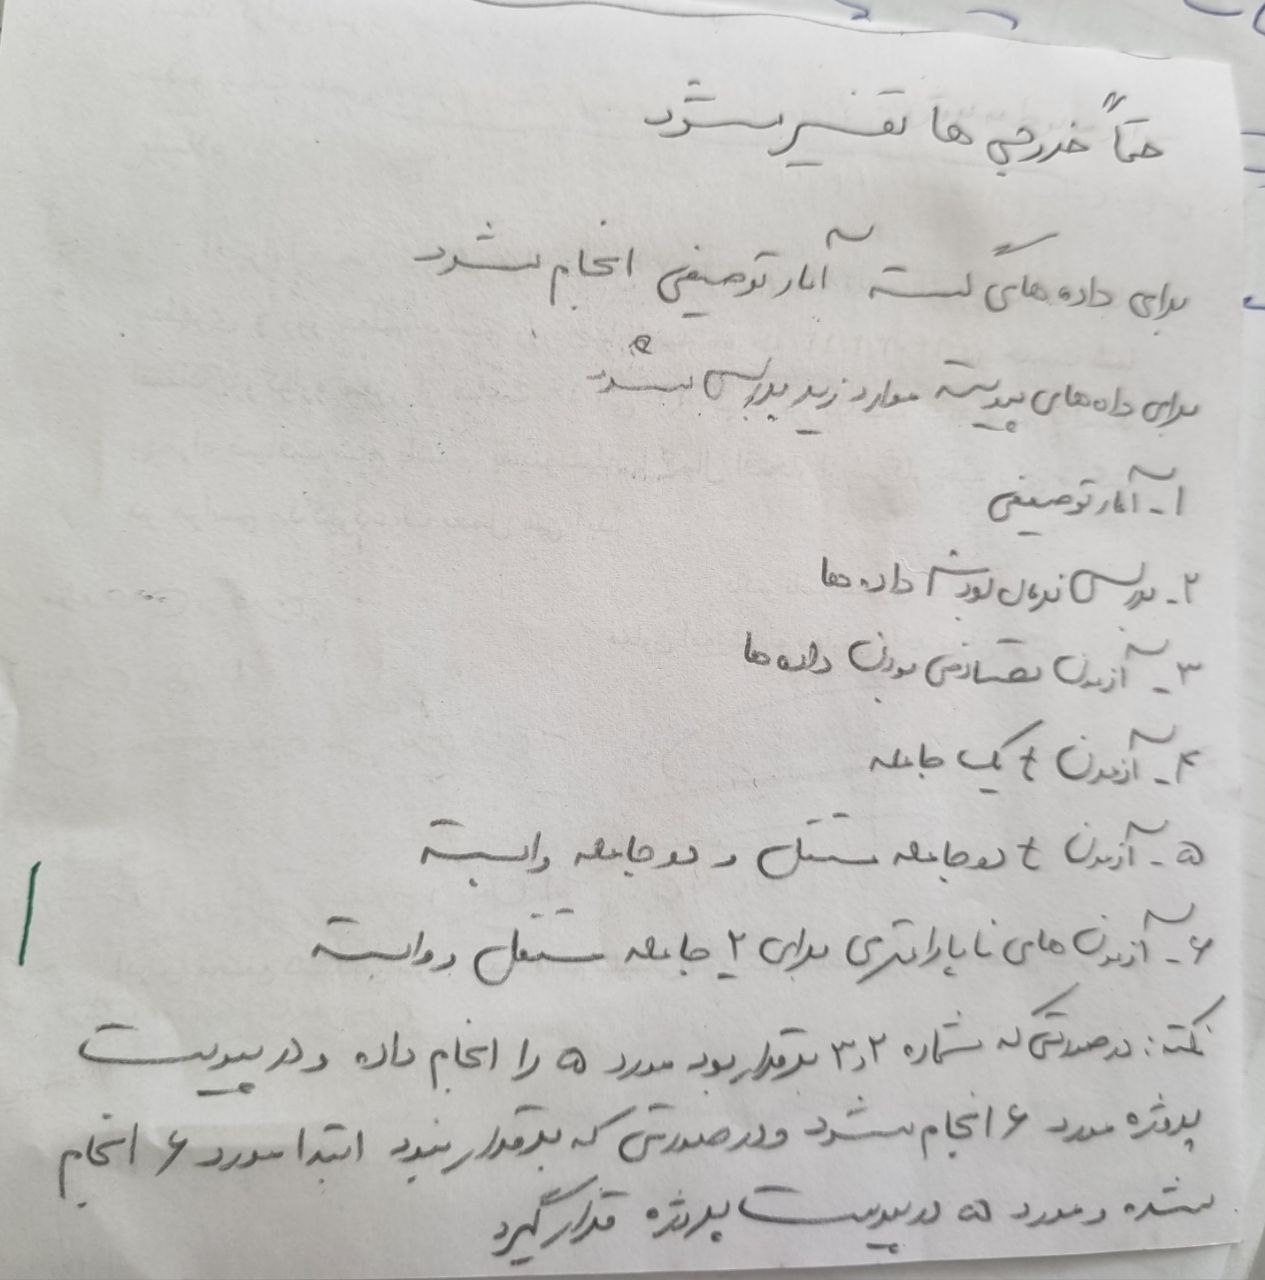 حتماً خروجی ها تفسیر بشود
برای داده های گسسته آمار توصیفی انجام بشود
برای داده های پیوسته موارد زیر بررسی بشود
۱- آمار توصیفی
۲- بررسی نرمال بودن داده ها
۳- آزمون تصادفی بودن داده ها
۴- آزمون t یک جامعه
۵- آزمون t دو جامعه مستقل و دو جامعه وابسته
۶- آزمون های ناپارامتری برای ۲ جامعه مستقل و وابسته
نکته: در صورتی که شماره ۲ و ۳ برقرار بود مورد ۵ را انجام داده و در پیوست
پروژه مورد ۶ انجام بشود و در صورتی که برقرار نبود ابتدا مورد ۶ انجام
بشده و مورد ۵ در پیوست پروژه قرار گیرد